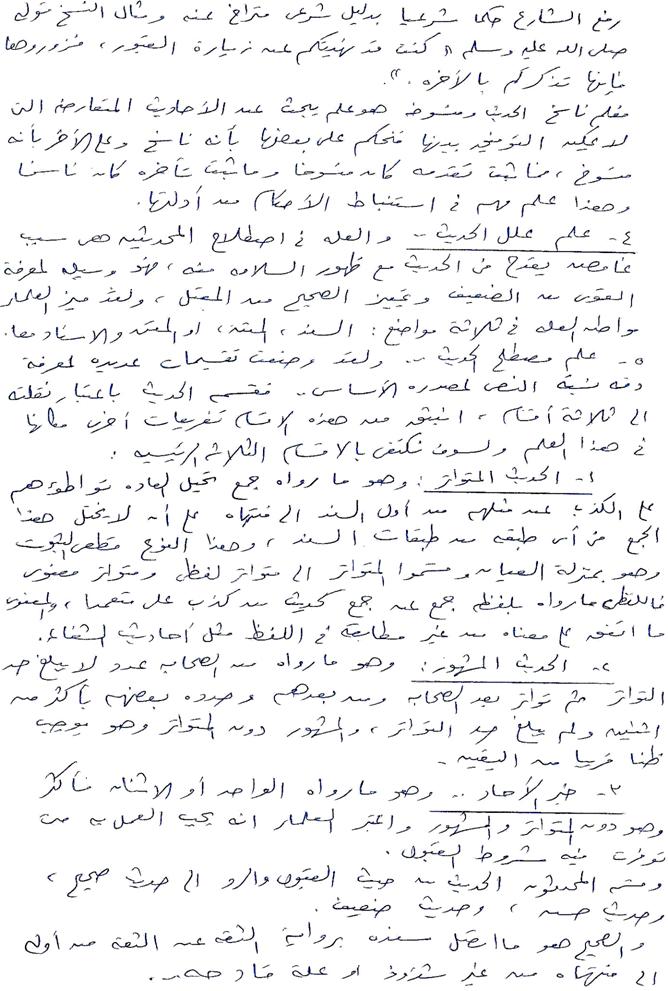 رفع الشارع حكما شرعيا بدليل شرعى متراخ عنه ومثال النسخ قوله
صلى الله عليه وسلم « كنت قد نهيتكم عن زيارة القبور ، فزوروها
فإنها تذكركم بالآخره . » .
فعلم ناسخ الحديث ومنسوخه هو علم يبحث عن الأحاديث المتعارضه التى
لا يمكن التوفيق بينها فنحكم على بعضها بأنه ناسخ وعلى الأخر بأنه
منسوخ ، فما ثبت تقدمه كان منسوخا وما ثبت تأخره كان ناسخا
وهذا علم مهم فى استنباط الأحكام من أدلتها .
٤ - علم علل الحديث .. والعله فى اصطلاح المحدثين هى سبب
غامض يقدح فى الحديث مع ظهور السلامه منه ، فهو وسيله لمعرفة
القوى من الضعيف وتمييز الصحيح من المعتل ، ولقد ميز العلماء
مواطن العله فى ثلاثة مواضع : السند ، المتن ، او المتن والاسناد معا .
٥ - علم مصطلح الحديث .. ولقد وضعت تقسيمات عديده لمعرفة
دقه نسبة النص لمصدره الأساسى .. فقسم الحديث باعتبار نقلته
الى ثلاثة أقسام ، انبثق من هذه الاقسام تفريعات أخرى مكانها
فى هذا العلم ولسوف نكتفى بالاقسام الثلاثه الرئيسيه :
١ - الحديث المتواتر : وهو ما رواه جمع تحيل العاده تواطؤهم
على الكذب عن مثلهم من أول السند الى منتهاه على أن لا يختل هذا
الجمع فى أى طبقه من طبقات السند ، وهذا النوع قطعى الثبوت
وهو بمنزلة العيان وقسموا المتواتر الى متواتر لفظى ومتواتر معنوى
فاللفظى ما رواه بلفظه جمع عن جمع كحديث من كذب على متعمدا ، والمعنوى
ما اتفق على معناه من غير مطابقة فى اللفظ مثل أحاديث الشفاعه .
٢ - الحديث المشهور : وهو ما رواه من الصحابه عدد لا يبلغ حد
التواتر ثم تواتر بعد الصحابه ومن بعدهم وحدده بعضهم بأكثر من
اثنين ولم يبلغ حد التواتر ، والمشهور دون المتواتر وهو يوجب
ظنا قريبا من اليقين .
٣ - خبر الأحاد .. وهو ما رواه الواحد أو الاثنان فأكثر
وهو دون المتواتر والمشهور واعتبر العلماء انه يجب العمل به متى
توفرت فيه شروط القبول .
وقسم المحدثون الحديث من حيث القبول والرد الى حديث صحيح ،
وحديث حسن ، وحديث ضعيف .
والصحيح هو ما اتصل سنده برواية الثقه عن الثقة من أوله
الى منتهاه من غير شذوذ او علة قادحه ..